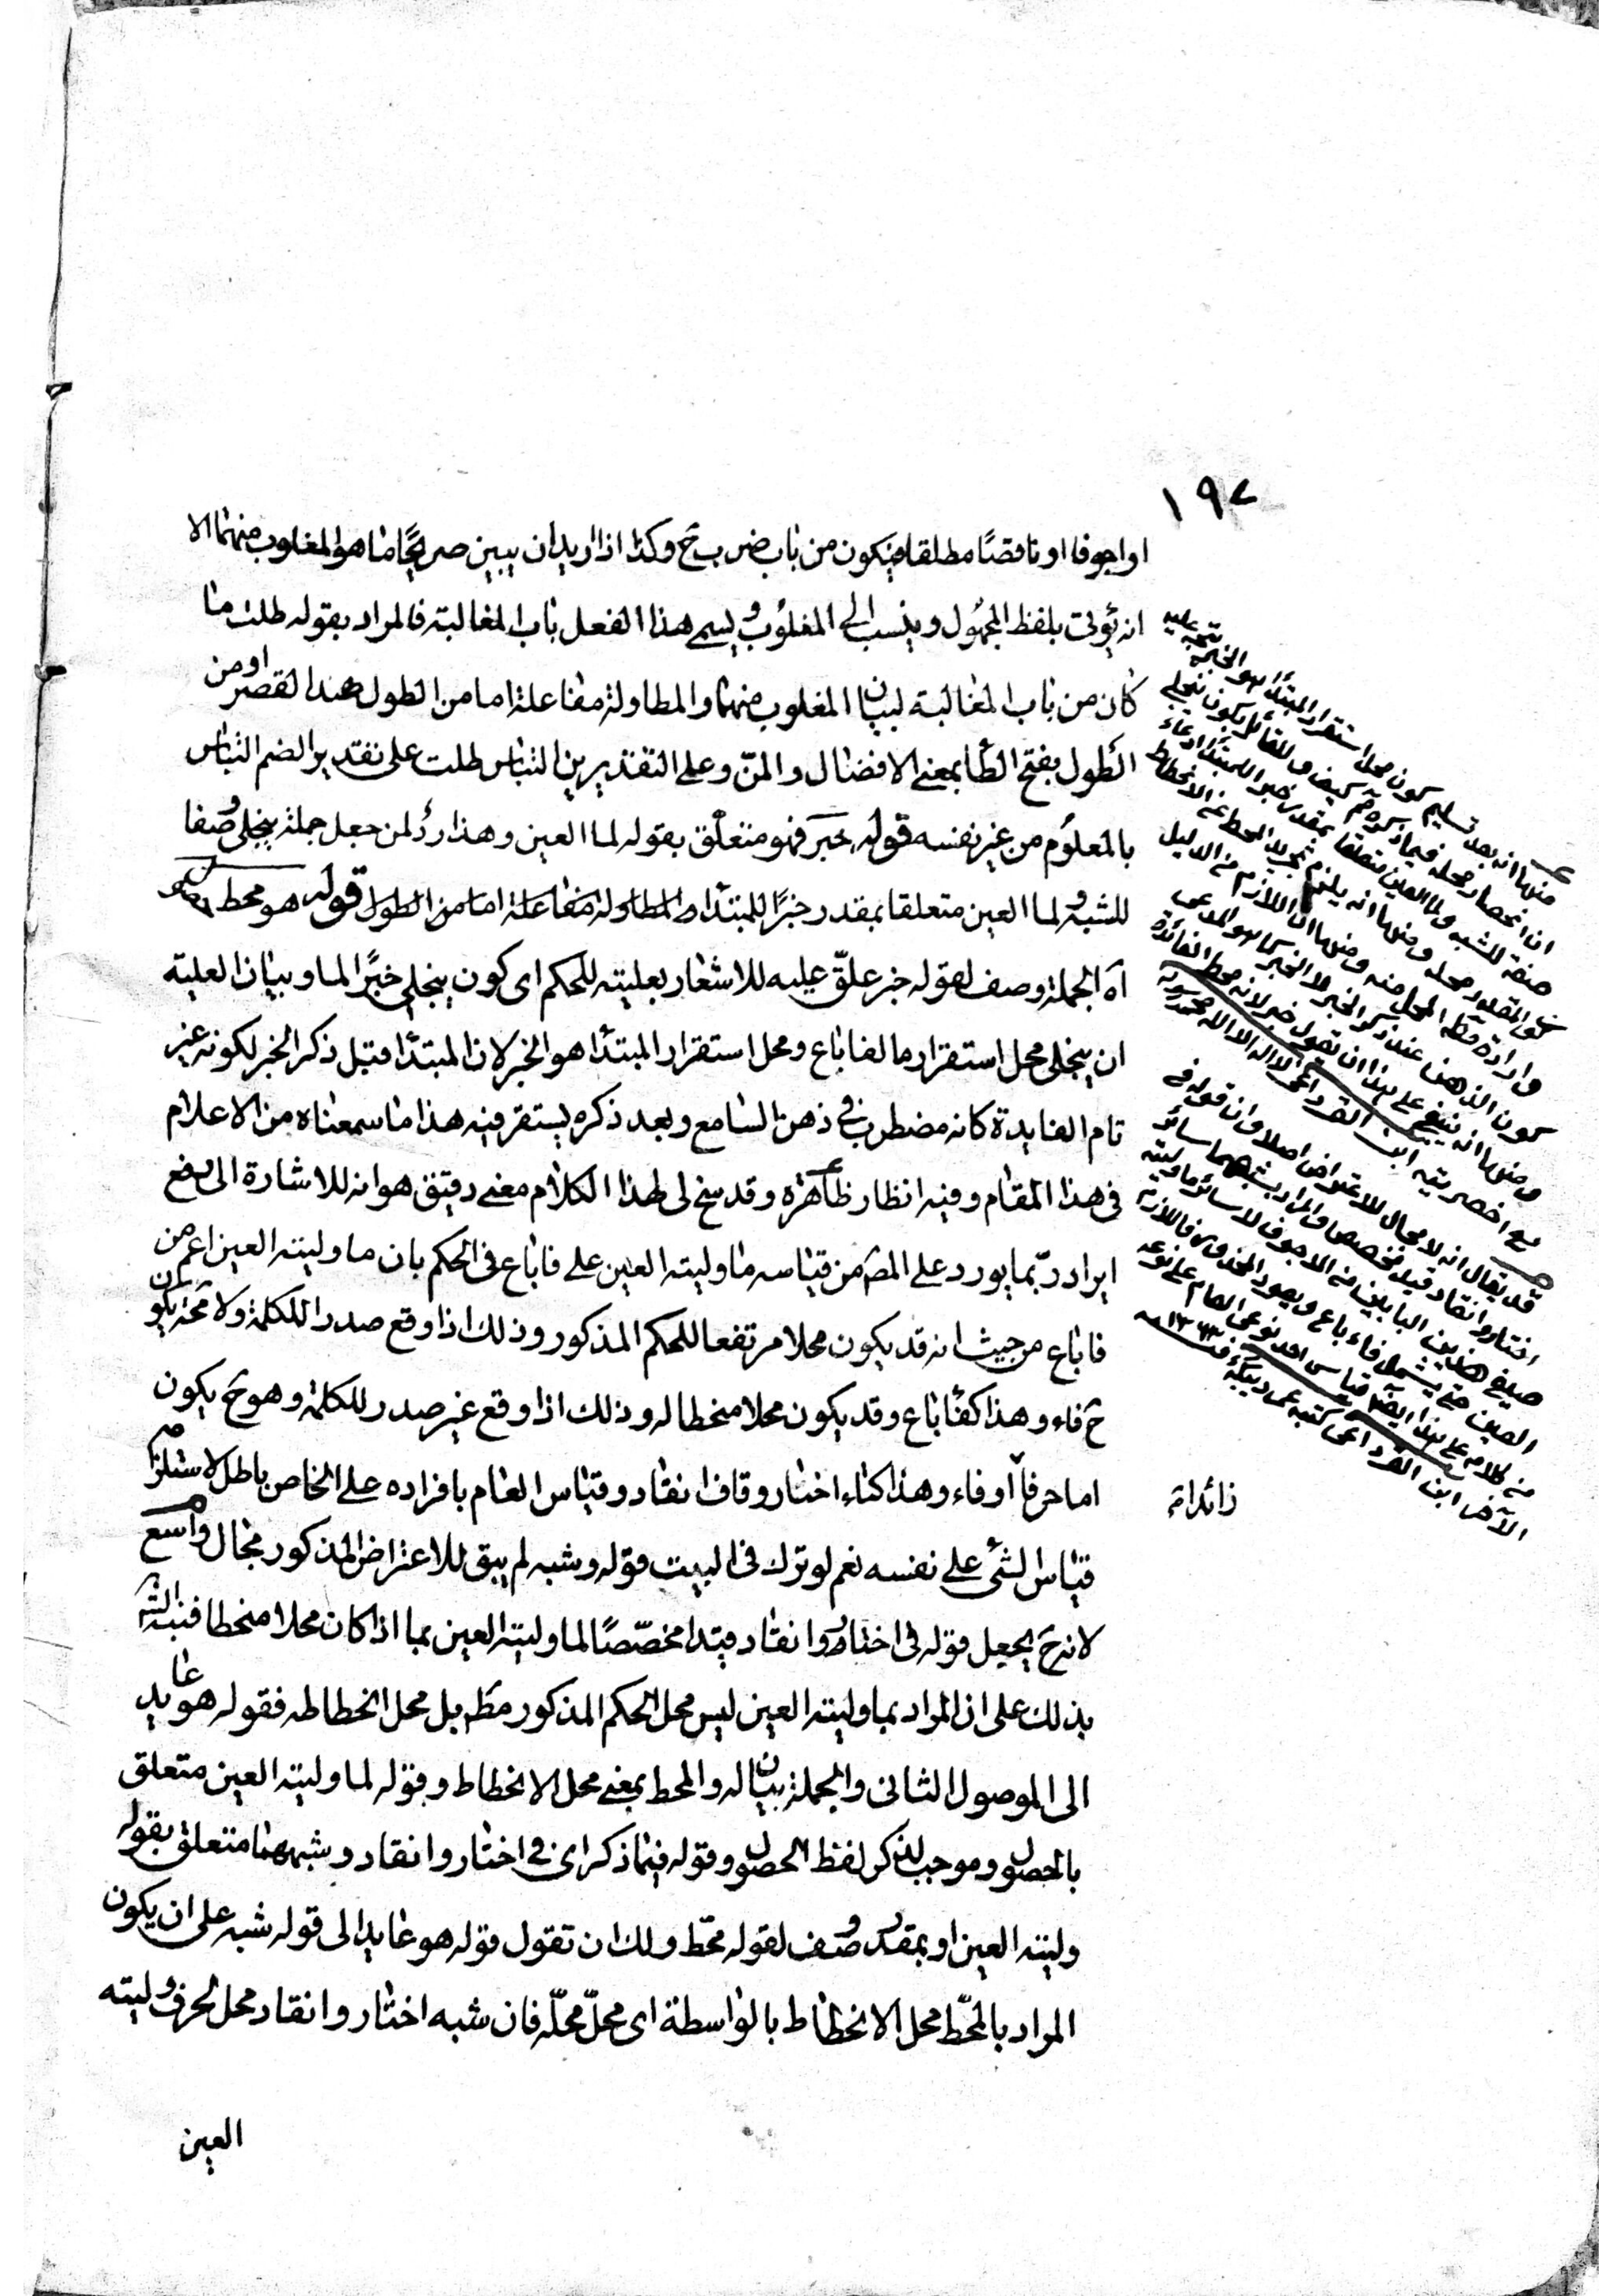 ١٩٧
او اجوفا او ناقصًا مطلقا فيكون من باب ضرب ح وكذا اذا اريد ان يبين صريحًا ما هو المغلوب منهما الا
انه يؤتى بلفظ المجهول وينسب الى المغلوب ويسمى هذا الفعل باب المغالبة فالمراد بقوله طلت ما
كان من باب المغالبة لبيان المغلوب منهما والمطاولة مفاعلة اما من الطول ضد القصر او من
الطول بفتح الطا بمعنى الافضال والمنّ وعلى التقديرين التباس طلت على تقدير الضم التباس
بالمعلوم من غير نفسه قوله خبر فهو متعلّق بقوله لما العين وهذا ردٌ لمن جعل جملة ينجلى وصفا
للشبه ولما العين متعلقا بمقدر خبرًا للمبتدا والمطاولة مفاعلة اما من الطول قوله هو محط
آه الجملة وصف لقوله خبر علّق عليه للاشعار بعليته للحكم اى كون ينجلى خبرًا لما وبيان العلية
ان ينجلى محل استقرار ما لفا باع ومحل استقرار المبتدأ هو الخبر لان المبتدأ قبل ذكر الخبر لكونه غير
تام الفايدة كانه مضطرب فى ذهن السامع وبعد ذكره يستقر فيه هذا ما سمعناه من الاعلام
فى هذا المقام وفيه انظار ظاهرة وقد سنح لى لهذا الكلام معنى دقيق هو انه للاشارة الى دفع
ايراد ربّما يورد على المص من قياسه ما وليته العين على فا باع فى الحكم بان ما وليته العين اعم من
فا باع من حيث انه قد يكون محلا مرتفعا للحكم المذكور وذلك اذا وقع صدرا للكلمة ولا محة يكون
ح فاء وهذا كفا باع وقد يكون محلا منحطا له وذلك اذا وقع غير صدر للكلمة وهو ح يكون
اما حرفا زائدا او فاء وهذا كتاء اختار وقاف انقاد وقياس العام بافراده على الخاص باطل لاستلزامه
قياس الشئ على نفسه نعم لو ترك فى البيت قوله وشبه لم يبق للاعتراض المذكور مجال واسع
لانه ح يجعل قوله فى اختار وانقاد قيدا مخصّصًا لما وليته العين بما اذا كان محلا منحطا فنبه الش
بذلك على ان المراد بما وليته العين ليس محل الحكم المذكور مط بل محل انحطاطه فقوله هو عايد
الى الموصول الثانى والجملة بيان له والمحط بمعنى محل الانحطاط وقوله لما وليته العين متعلق
بالحصول وموجب لذكر لفظ الحصول وقوله فيما ذكر اى فى اختار وانقاد وشبههما متعلق بقوله
وليته العين او بمقدر وصف لقوله محّط ولك ان تقول قوله هو عايد الى قوله شبه على ان يكون
المراد بالمحّط محل الانحطاط بالواسطة اى محلّ محلّه فان شبه اختار وانقاد محل الحرف وليته
العين
منها انه بعد تسليم كون محل استقرار المبتدأ هو الخبر يتجه عليه
ان انحصار محله فيما ذكره م كيف وللقائل بكون ينجلى
صفة للشبه ولما العين متعلقا بمقدر خبرا للمبتدأ ادعاء
كون المقدر محله ومنها انه يلزم تجريد المحط عن الانحطاط
وارادة مط المحل منه ومنها ان اللازم من الدليل
كون الذهن عند ذكر الخبر لا الخبر كما هو المدعى
ومنها انه ينبغى على هذا ان تقول خبر لانه محط الفائدة
مع اخصريته ابن القرداغى
قد يقال انه لا مجال للاعتراض اصلا وان قوله فى
اختار وانقاد قيد مخصص والمراد بشبههما سائر
صيغ هذين البابين من الاجوف لا سائر ما وليته
العين حتى يشمل فاء باع ويعود المحذور
من كلامه على هذا ايضا قياس احد نوعى العام على نوعه
الآخر ابن القرداغى
زائدا